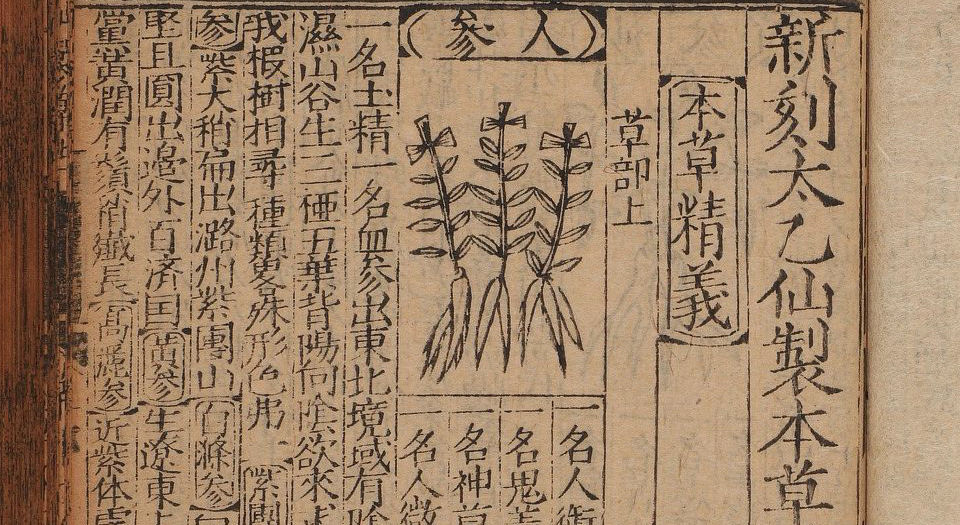 新刻太乙仙製本草
本草精義
草部上
人參
一名人銜
一名鬼蓋
一名神草
一名人微
一名土精一名血參出東北境域有陰
濕山谷生三椏五葉背陽向陰欲來求
我椵樹相尋種類更殊形色弗一紫團
參紫大稍扁出潞州紫團山白滌參白
堅且圓出邊外百済国黃參生遼東上
黨黃潤有鬚稍纖長高麗參近紫体虛